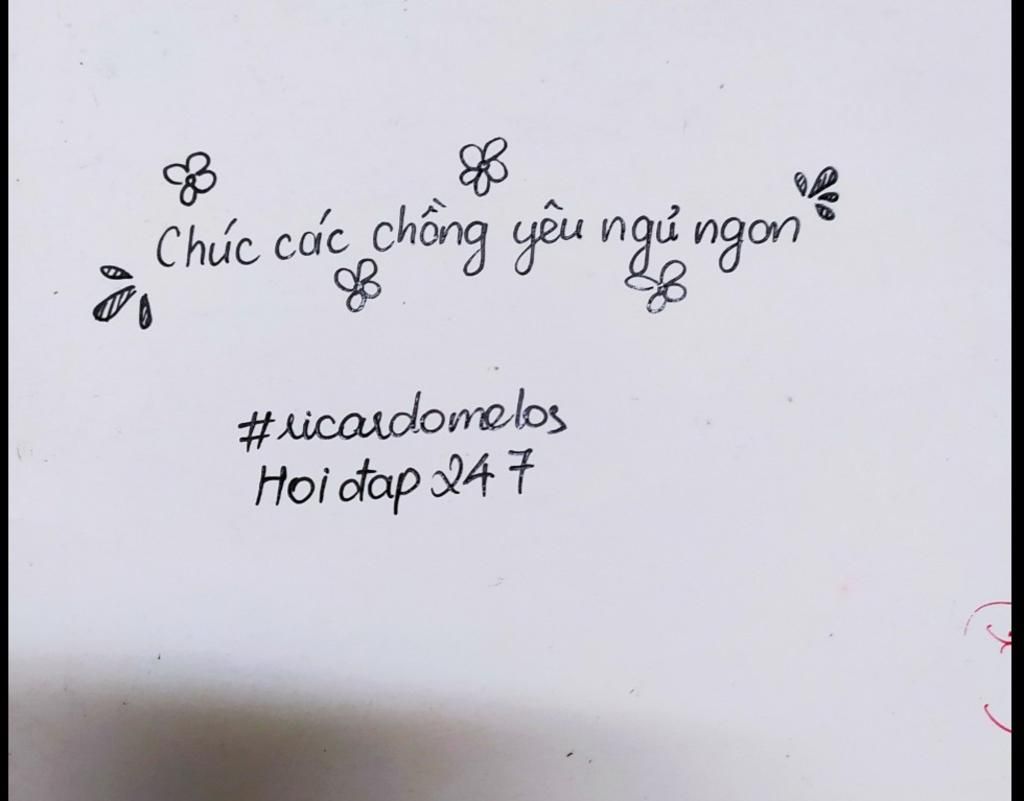 Chúc các chồng yêu ngủ ngon
#ricardomelos
Hoi đap 247